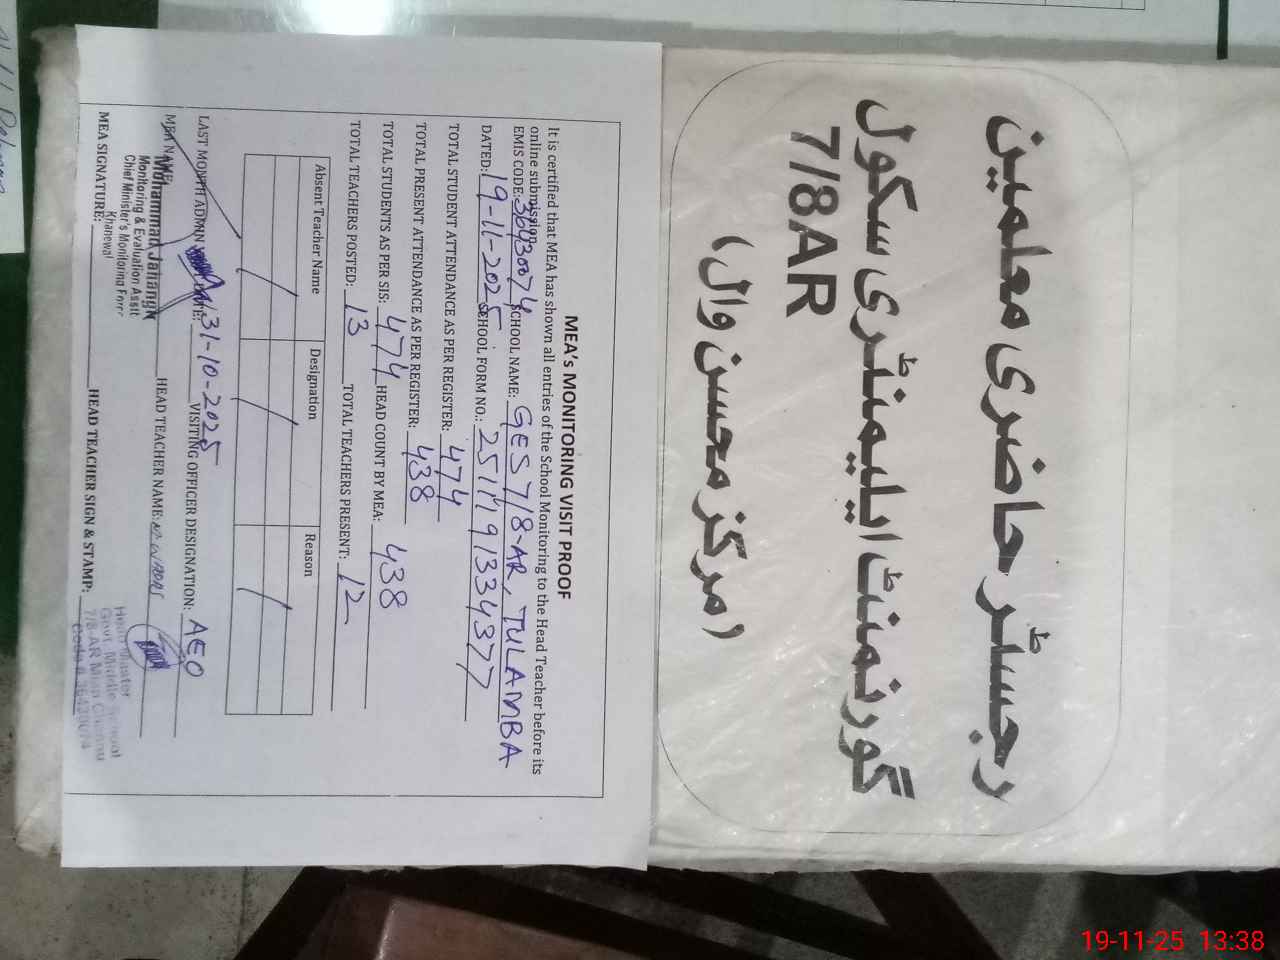 رجسٹر حاضری معلمین
گورنمنٹ ایلیمنٹری سکول
7/8AR
(مرکز محسن وال)
MEA's MONITORING VISIT PROOF
It is certified that MEA has shown all entries of the School Monitoring to the Head Teacher before its
online submission
EMIS CODE: 36430074 SCHOOL NAME: GES 7/8-AR, TULAMBA
DATED: 19-11-2025 SCHOOL FORM NO.: 2511191334377
TOTAL STUDENT ATTENDANCE AS PER REGISTER: 474
TOTAL PRESENT ATTENDANCE AS PER REGISTER: 438
TOTAL STUDENTS AS PER SIS: 474 HEAD COUNT BY MEA: 438
TOTAL TEACHERS POSTED: 13 TOTAL TEACHERS PRESENT: 12
Absent Teacher Name Designation Reason
LAST MONTH ADMIN 31-10-2025 VISITING OFFICER DESIGNATION: AEO
MEA NAME: HEAD TEACHER NAME:
Muhammad Jahangir
Monitoring & Evaluation Asstt
Chief Minister's Monitoring Force
Khanewal
MEA SIGNATURE: HEAD TEACHER SIGN & STAMP:
Head Master
Govt. Middle School
7/8-AR Mian Channu
Code # 36430074
19-11-25 13:38